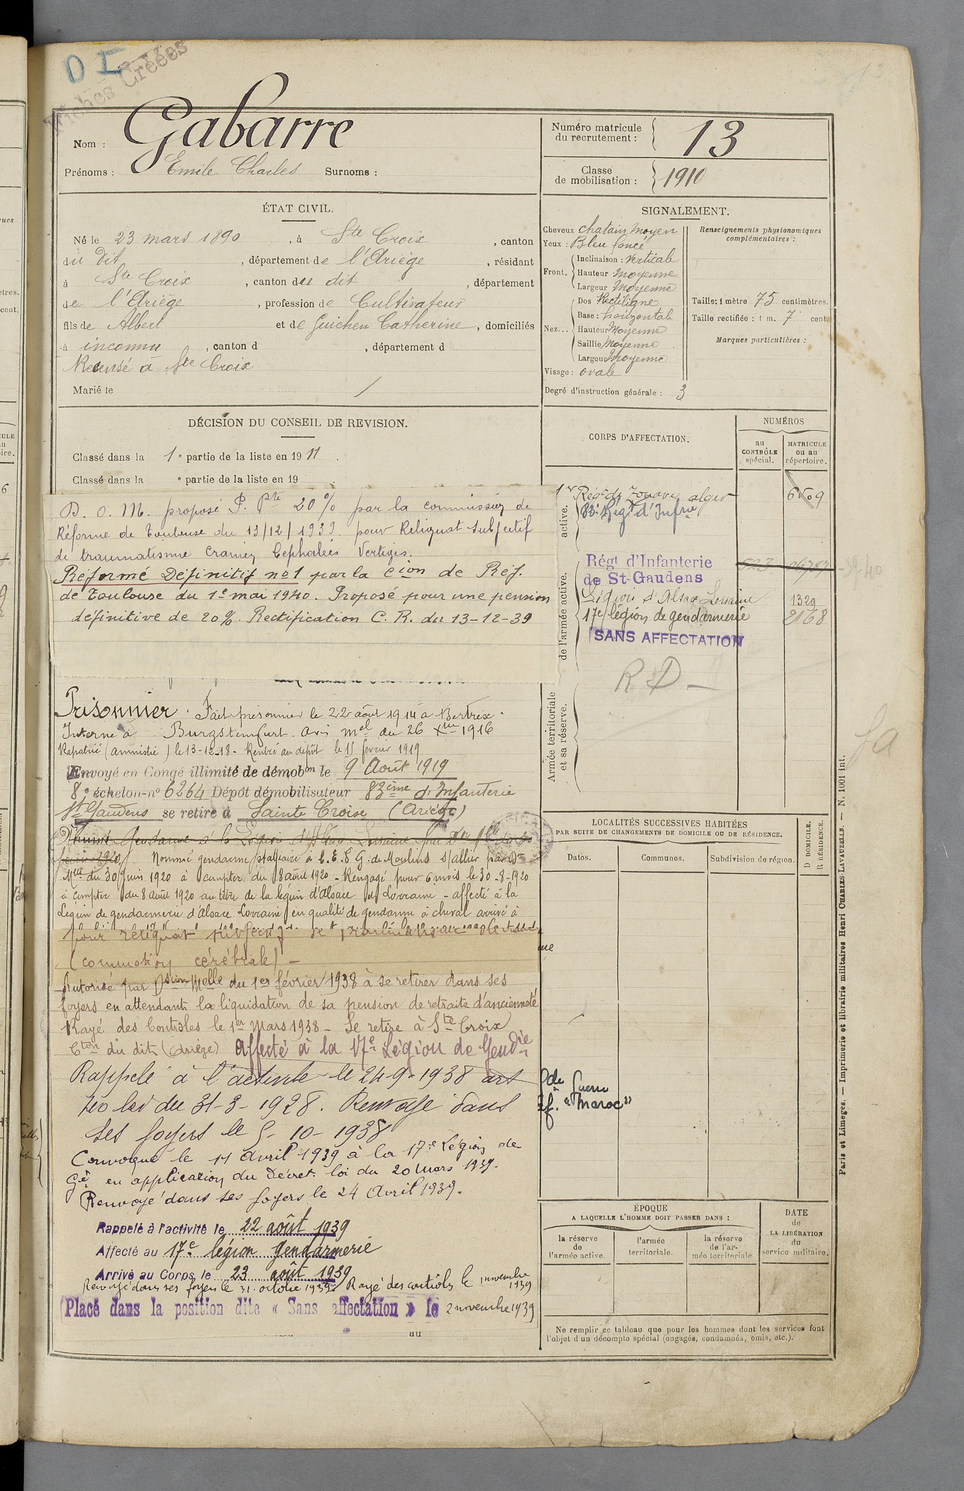 D I
Fiches Créées
Nom : Gabarre
Prénoms : Emile Charles Surnoms :
Numéro matricule du recrutement : 13
Classe de mobilisation : 1910
ÉTAT CIVIL.
Né le 23 mars 1890, à Ste Croix, canton
du dit, département de l'Ariège, résidant
à Ste Croix, canton du dit, département
de l'Ariège, profession de Cultivateur
fils de Albert et de Guichen Catherine, domiciliés
à inconnu, canton d , département d
Recensé à Ste Croix
Marié le /
SIGNALEMENT.
Cheveux chatain moyen
Yeux : Bleu foncé
Front. Inclinaison : Verticale
Hauteur Moyenne
Largeur Moyenne
Nez... Dos Rectiligne
Base : horizontale
Hauteur Moyenne
Saillie Moyenne
Largeur Moyenne
Visage : ovale
Degré d'instruction générale : 3
Renseignements physionomiques complémentaires :
Taille : 1 mètre 75 centimètres.
Taille rectifiée : 1 m. 7 cent
Marques particulières :
DÉCISION DU CONSEIL DE REVISION.
Classé dans la 1e partie de la liste en 1911.
Classé dans la e partie de la liste en 19
D. O. M. proposé P. Pte 20% par la commission de
Réforme de Toulouse du 13/12/1939 pour Reliquat subjectif
de traumatisme Cranien Céphalées Vertiges.
Réformé Définitif no1 par la Cion de Réf.
de Toulouse du 1e mai 1940. Proposé pour une pension
définitive de 20% Rectification C. R. du 13-12-39
Prisonnier. Fait prisonnier le 22 août 1914 a Bertrix.
Interné à Burgsteinfurt. avis mel du 26 Xbre 1916
Rapatrié (amnistié) le 13-12-18 - Rentré au dépôt le 15 février 1919
Envoyé en Congé illimité de démobon le 9 Août 1919
8e échelon no 6264 Dépôt démobilisateur 83ème d'Infanterie
St Gaudens se retire à Sainte Croix (Ariège)
Nommé gendarme stagiaire à l'E. P. G. de Moulins s/allier par Don
Melle du 30 Juin 1920 à compter du 8 août 1920 - Rengagé pour 6 mois le 30-8-1920
à compter du 8 août 1920 au titre de la légion d'Alsace et Lorraine - affecté à la
Légion de gendarmerie d'Alsace Lorraine en qualité de gendarme à cheval arrivé à
(commotion cérébrale) -
Autorisé par Dsion Melle du 1er février 1938 à se retirer dans ses
foyers en attendant la liquidation de sa pension de retraite d'ancienneté
Rayé des Contrôles le 1er Mars 1938 - Se retire à Ste Croix
Cton du dit (Ariège) Affecté à la 17e Légion de Gendie
Rappelé à l'activité le 24-9-1938 art
40 loi du 31-3-1928. Renvoyé dans
ses foyers le 5-10-1938
Convoqué le 11 Avril 1939 à la 17e Légion de
Gie en application du Décret-loi du 20 Mars 1939.
Renvoyé dans ses foyers le 24 Avril 1939.
Rappelé à l'activité le 22 août 1939
Affecté au 17e légion Gendarmerie
Arrivé au Corps le 23 août 1939
Renvoyé dans ses foyers le 31 octobre 1939 Rayé des contrôles le 1 novembre 1939
Placé dans la position dite « Sans affectation » le 2 novembre 1939
au
CORPS D'AFFECTATION.
NUMÉROS
au CONTRÔLE spécial.
MATRICULE ou au répertoire.
active.
1er Régt de Zouaves alger
83e Régt d'Infrie
de l'armée active.
Régt d'Infanterie
de St-Gaudens
Légion d'Alsace Lorraine 1329
17e légion de gendarmerie 2168
SANS AFFECTATION
Armée territoriale et sa réserve.
R D -
LOCALITÉS SUCCESSIVES HABITÉES
PAR SUITE DE CHANGEMENTS DE DOMICILE OU DE RÉSIDENCE.
Dates.
Communes.
Subdivision de région.
D DOMICILE.
R RÉSIDENCE.
de Guerre
"Maroc"
ÉPOQUE
A LAQUELLE L'HOMME DOIT PASSER DANS :
la réserve de l'armée active.
l'armée territoriale.
la réserve de l'armée territoriale.
DATE de LA LIBÉRATION du service militaire.
Ne remplir ce tableau que pour les hommes dont les services font
l'objet d'un décompte spécial (engagés, condamnés, omis, etc.).
Paris et Limoges. — Imprimerie et librairie militaires Henri CHARLES-LAVAUZELLE. — N. 1001 int.